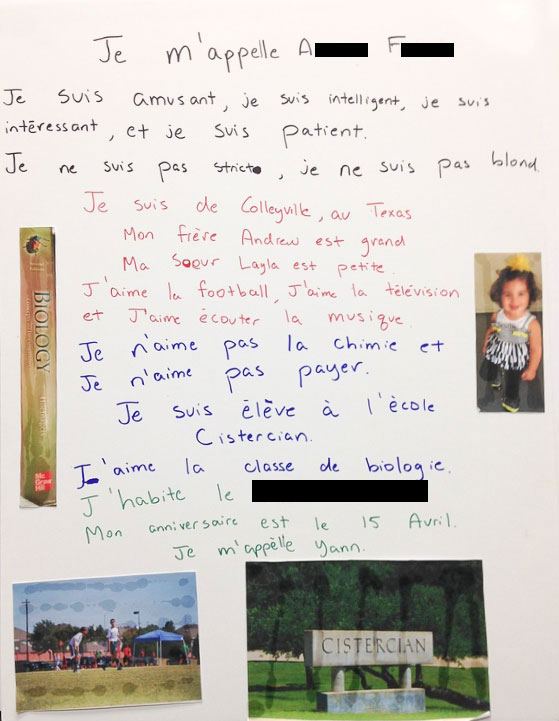 Je m'appelle A F
Je suis amusant, je suis intelligent, je suis
intéressant, et je suis patient.
Je ne suis pas strict, je ne suis pas blond.
Je suis de Colleyville, au Texas
Mon frère Andrew est grand
Ma Soeur Layla est petite.
J'aime la football, J'aime la télévision
et J'aime écouter la musique.
Je n'aime pas la chimie et
Je n'aime pas payer.
Je suis élève à l'école
Cistercian.
J'aime la classe de biologie.
J'habite le
Mon anniversaire est le 15 Avril.
Je m'appèlle Yann.
BIOLOGY
Mc
Graw
Hill
CISTERCIAN